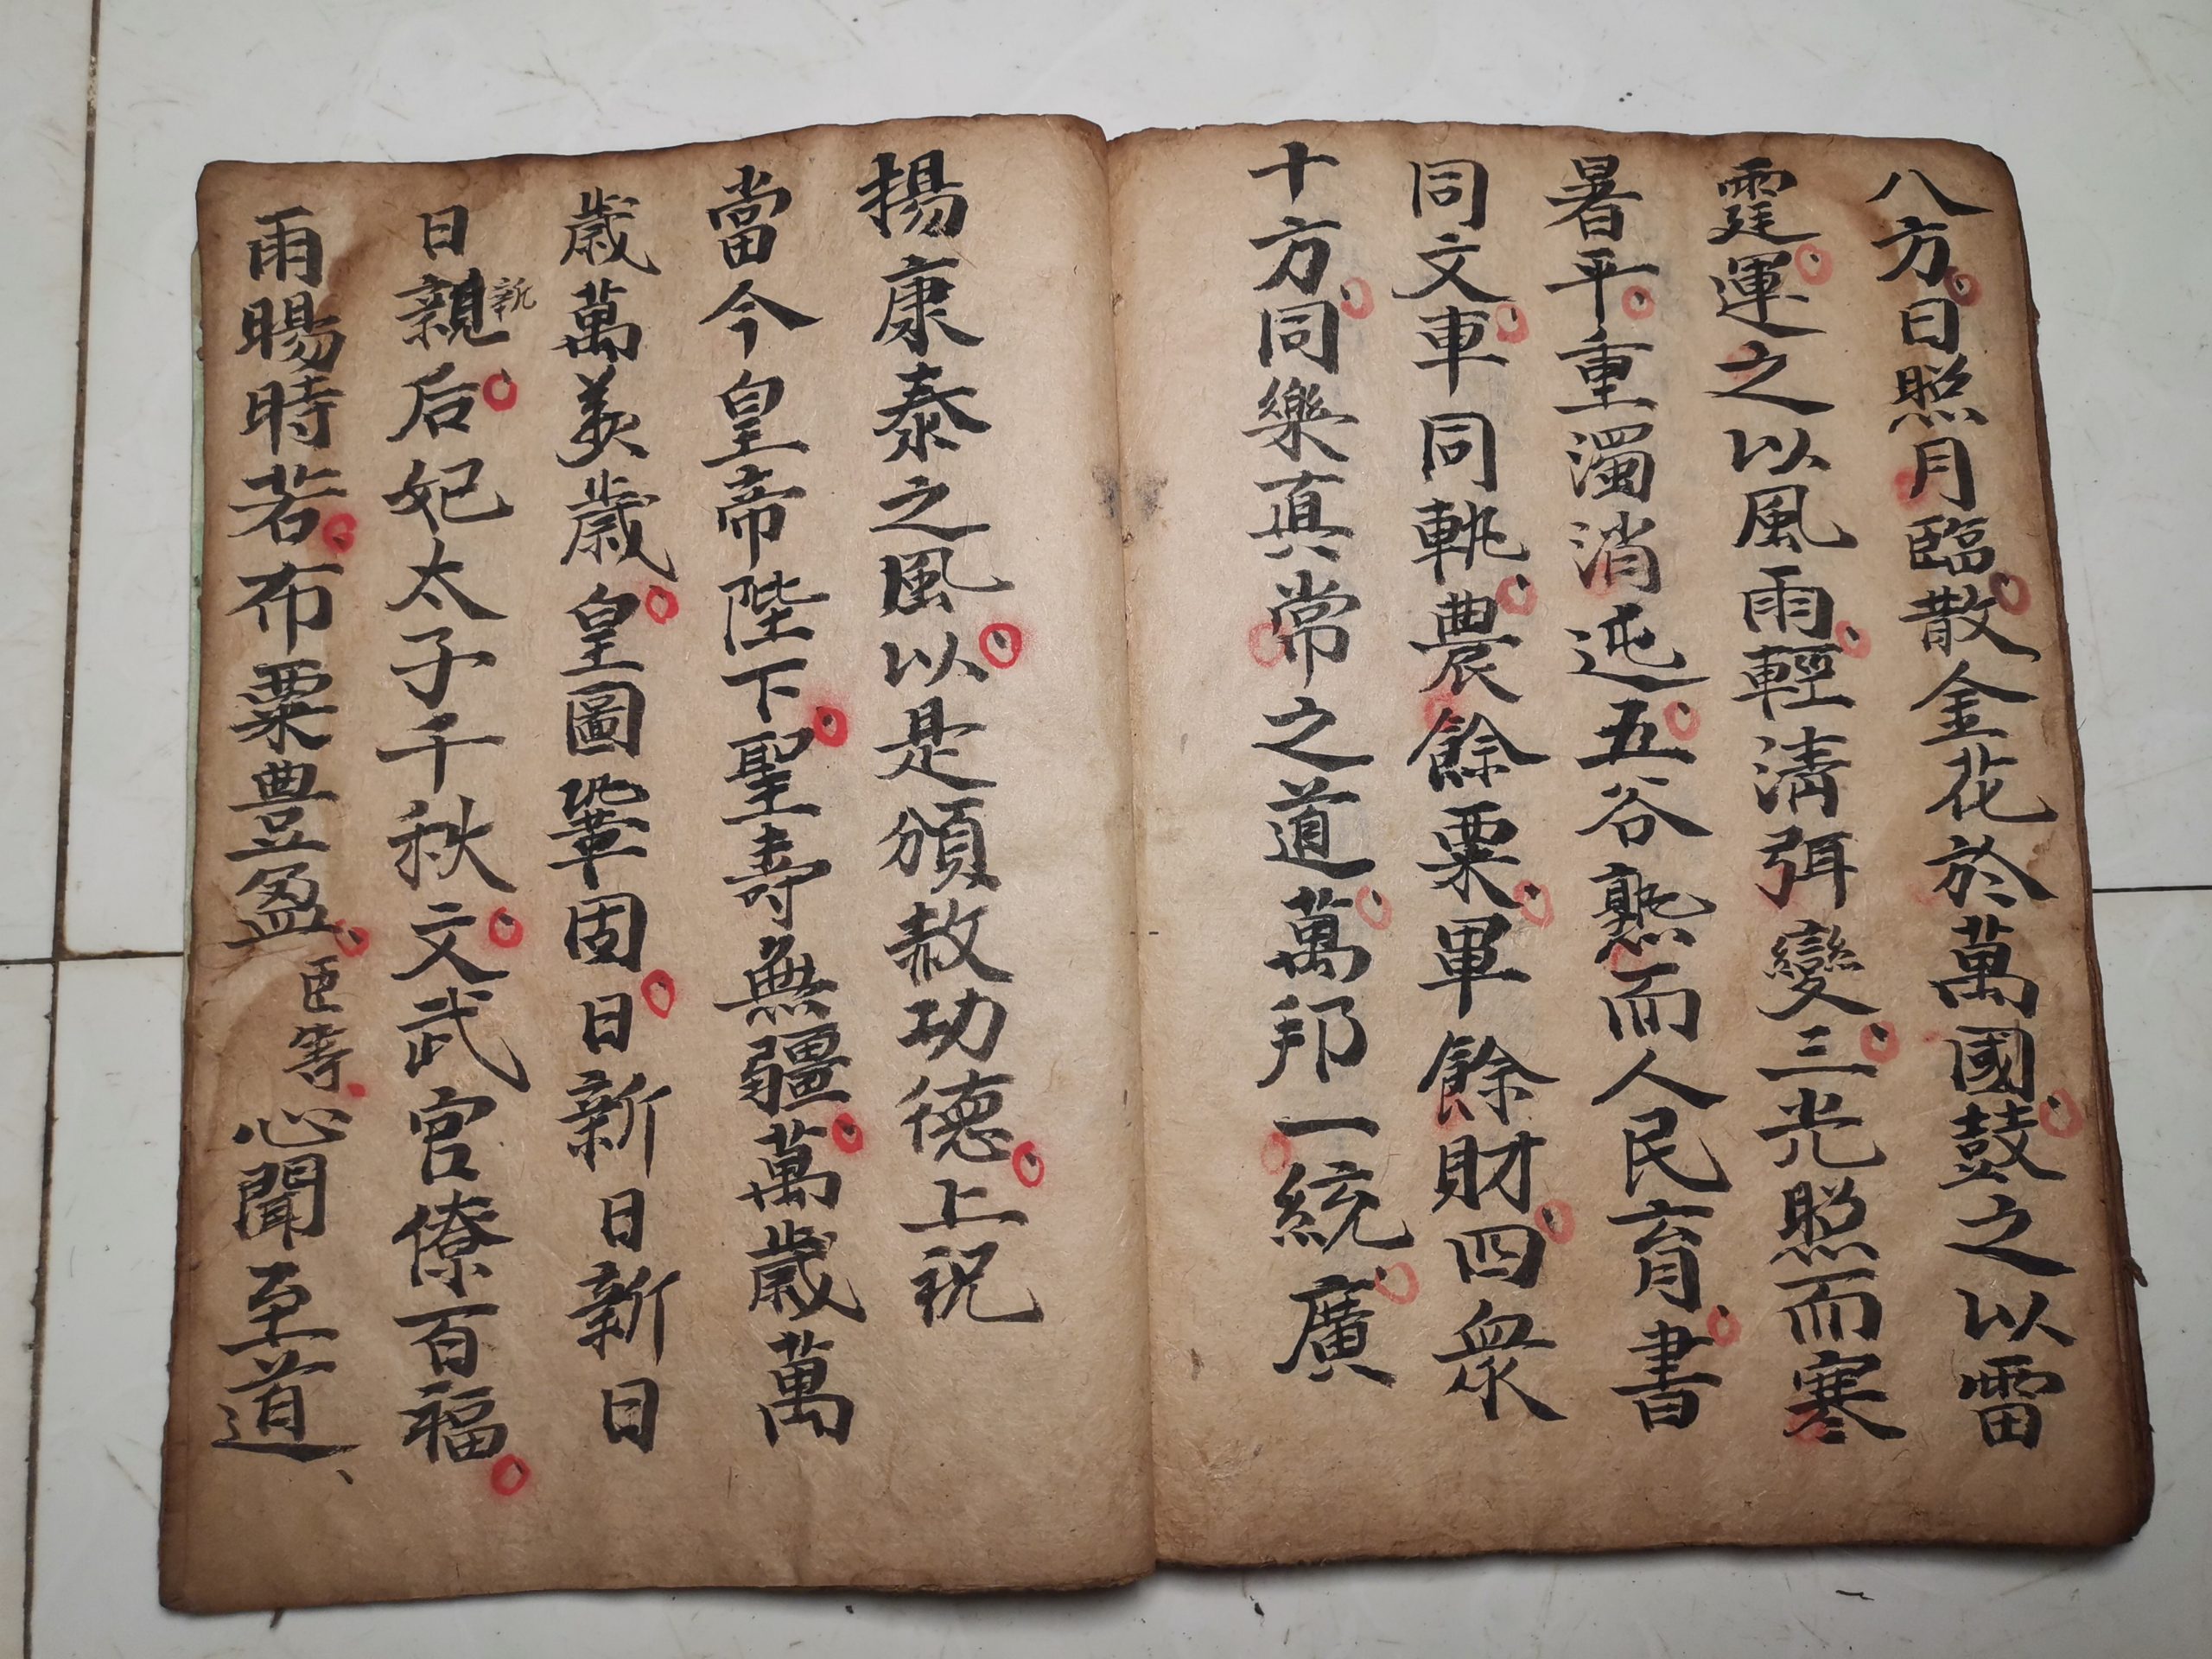 八方日照月臨散金花於萬國鼓之以雷
霆運之以風雨輕清弭變三光照而寒
暑平重濁消迍五谷熟而人民育書
同文車同軌農餘粟軍餘財四衆
十方同樂真常之道萬邦一統廣
揚康泰之風以是頒赦功德上祝
當今皇帝陛下聖壽無疆萬歲萬
歲萬萬歲皇圖鞏固日新日新日
日親新后妃太子千秋文武官僚百福
雨暘時若布粟豊盈臣等心聞至道